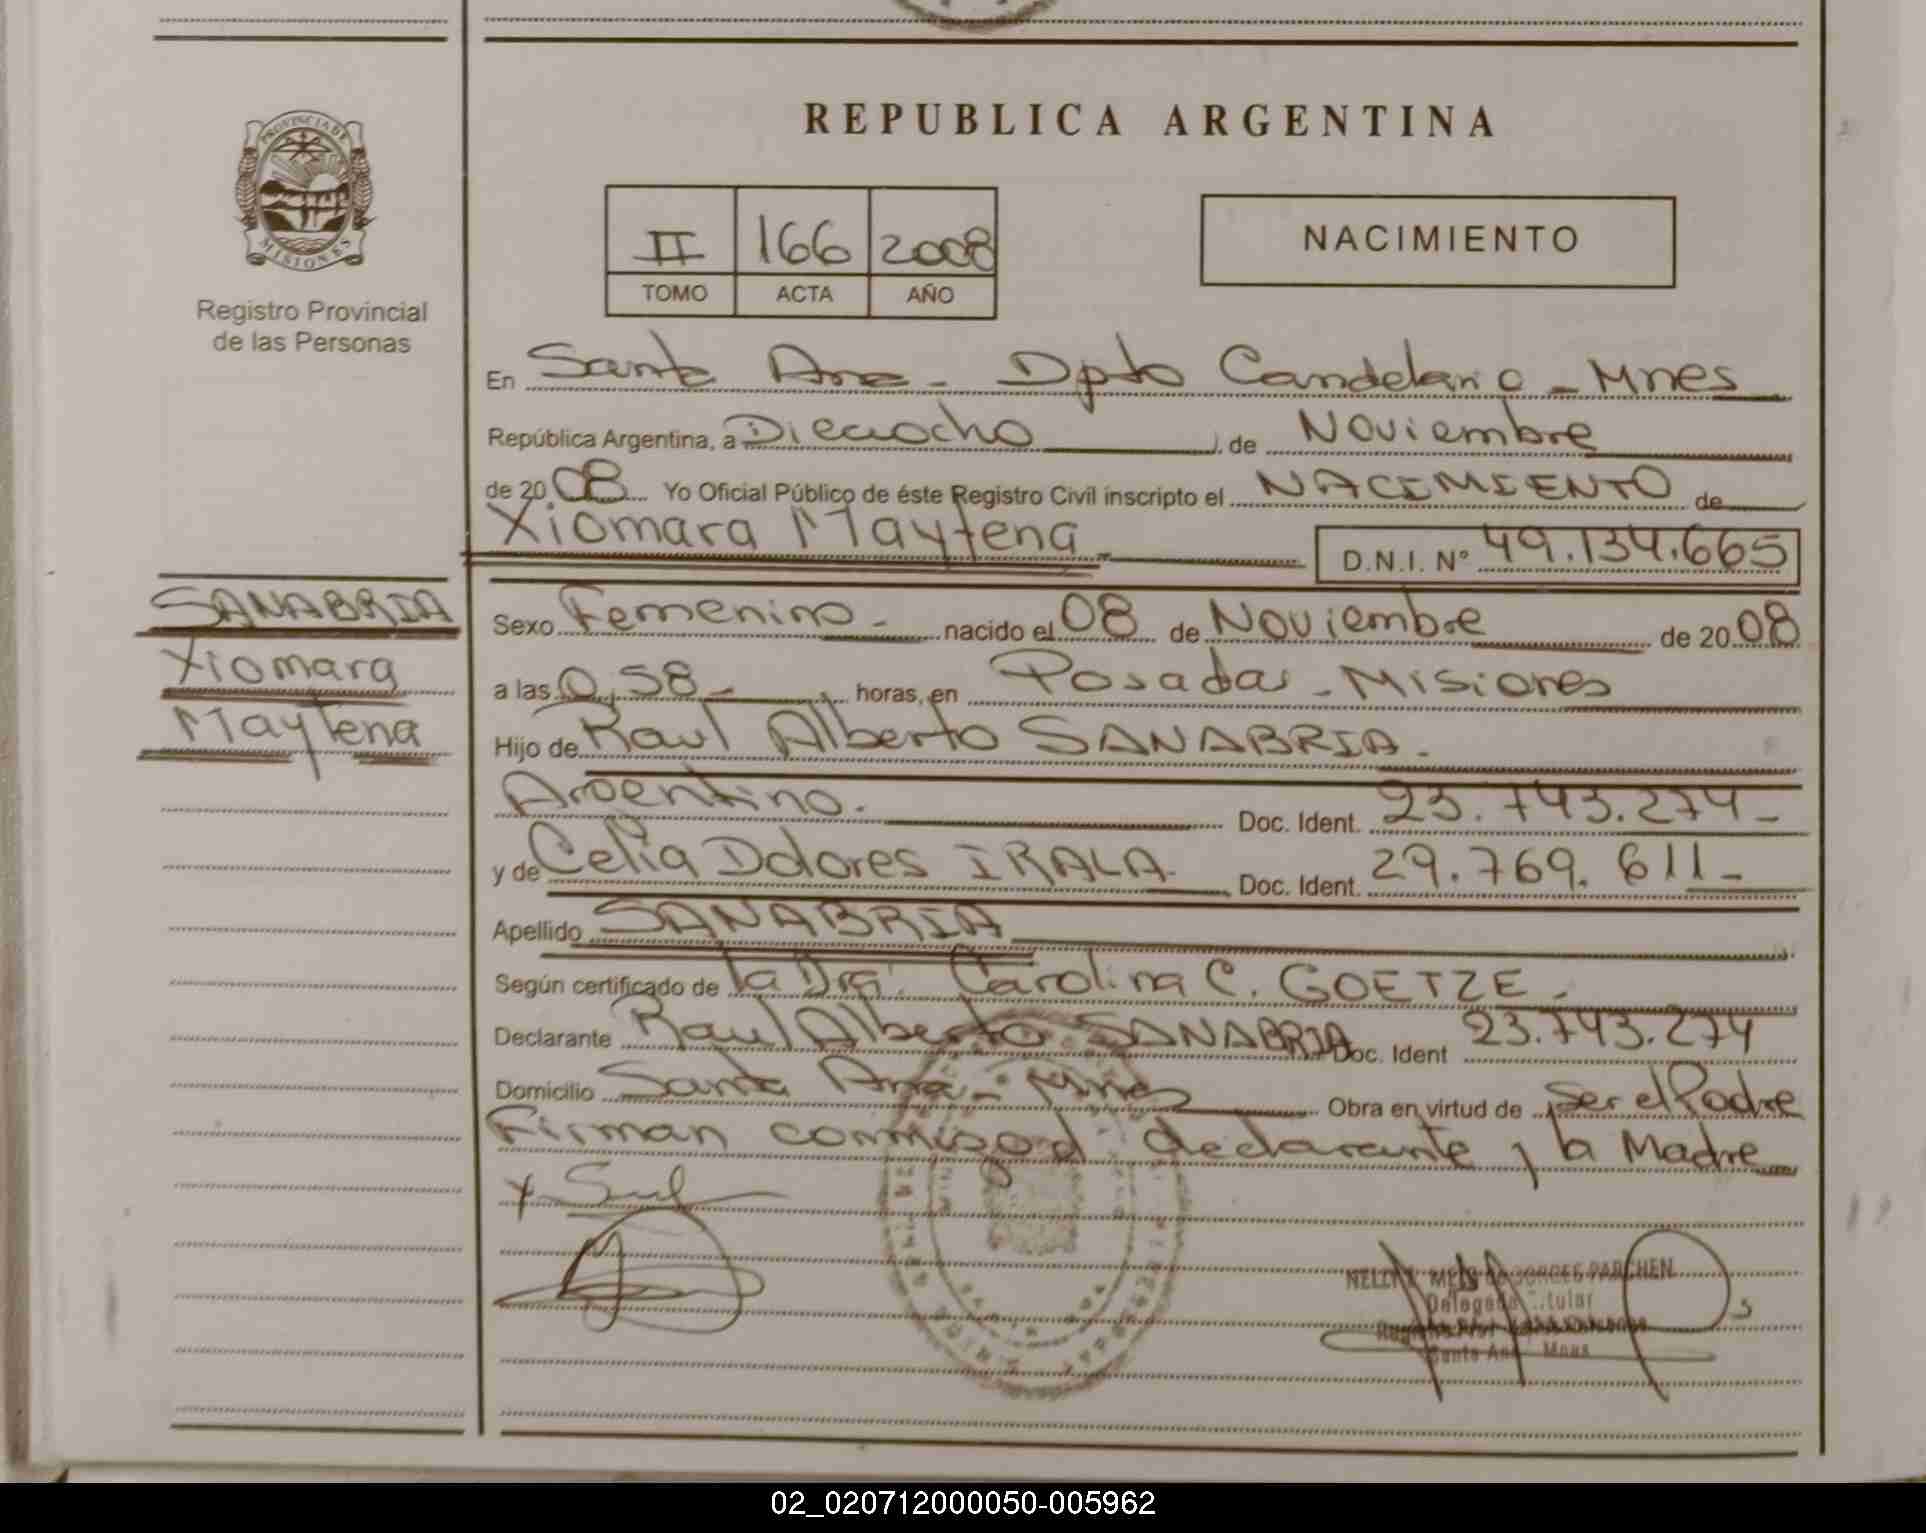 REPUBLICA ARGENTINA
PROVINCIA DE
MISIONES
Registro Provincial
de las Personas
II 166 2008
TOMO ACTA AÑO
NACIMIENTO
En Santa Ana - Dpto Candelaria - Mnes
República Argentina, a Dieciocho, de Noviembre
de 2008 Yo Oficial Público de éste Registro Civil inscripto el NACIMIENTO de
Xiomara Maytena
D.N.I. Nº 49.134.665
SANABRIA
Xiomara
Maytena
Sexo Femenino - nacido el 08 de Noviembre de 2008
a las 0,58 - , horas, en Posadas - Misiones
Hijo de Raul Alberto SANABRIA.
Argentino. Doc. Ident. 23.743.274 -
y de Celia Dolores IRALA Doc. Ident. 29.769.611 -
Apellido SANABRIA
Según certificado de la Dra. Carolina C. GOETZE -
Declarante Raul Alberto SANABRIA Doc. Ident 23.743.274
Domicilio Santa Ana - Mnes Obra en virtud de ser el Padre
Firman conmigo el declarante y la Madre
NELLY
PARCHEN
Delegada Titular
Santa Ana Mnes
02_020712000050-005962